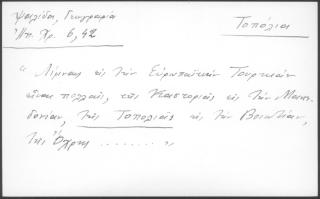 Ψαλίδα, Γεωγραφία
Ἠπ. Χρ. 6, 42
Τοπόλια
"Λίμνας εἰς τὴν Εὐρωπαϊκὴν Τουρκίαν
εἶναι πολλαί, τῆς Καστοριᾶς εἰς τὴν Μακε-
δονίαν, τῆς Τοπολιᾶς εἰς τὴν Βοιωτίαν,
τῆς Ὄχρης ........ "